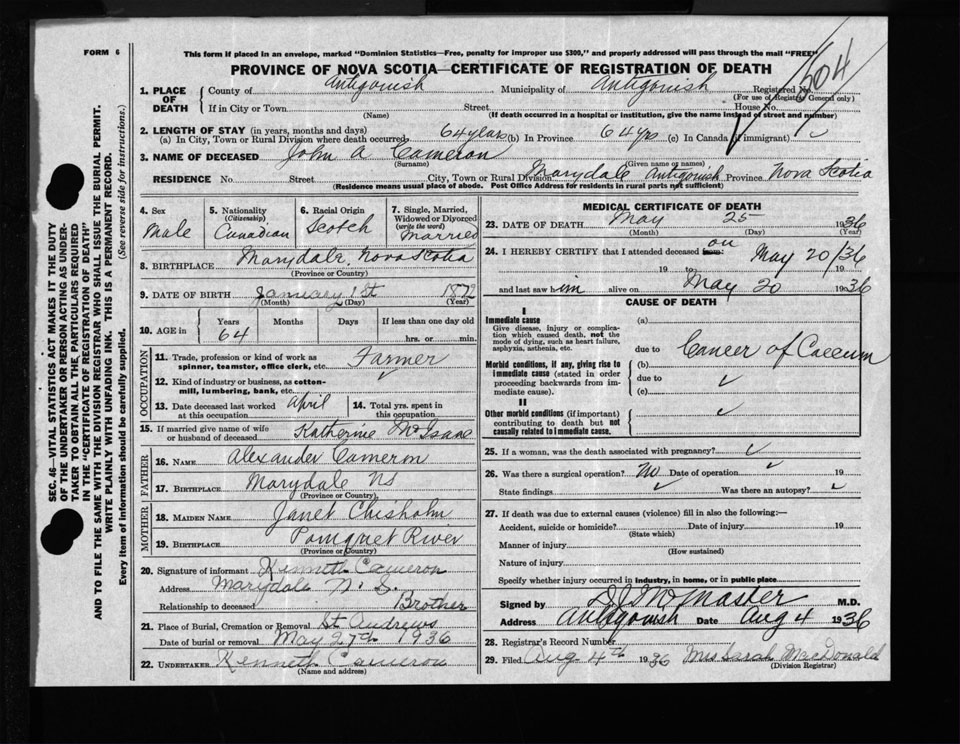 FORM 6
This form if placed in an envelope, marked "Dominion Statistics—Free, penalty for improper use $300," and properly addressed will pass through the mail "FREE"
PROVINCE OF NOVA SCOTIA—CERTIFICATE OF REGISTRATION OF DEATH
504
1. PLACE OF DEATH
County of Antigonish Municipality of Antigonish Registered No.
(For use of Registrar General only)
If in City or Town Street House No.
(Name) (If death occurred in a hospital or institution, give the name instead of street and number)
2. LENGTH OF STAY (in years, months and days)
(a) In City, Town or Rural Division where death occurred 64 years (b) In Province 64 yrs (c) In Canada (if immigrant)
3. NAME OF DECEASED John A Cameron
(Surname) (Given name or names)
RESIDENCE No. Street City, Town or Rural Division Marydale Antigonish Province Nova Scotia
(Residence means usual place of abode. Post Office Address for residents in rural parts not sufficient)
4. Sex Male
5. Nationality (Citizenship) Canadian
6. Racial Origin Scotch
7. Single, Married, Widowed or Divorced (write the word) Married
8. BIRTHPLACE Marydale, Nova Scotia
(Province or Country)
9. DATE OF BIRTH January 1st 1872
(Month) (Day) (Year)
10. AGE in Years Months Days If less than one day old
64 hrs. or min.
OCCUPATION
11. Trade, profession or kind of work as spinner, teamster, office clerk, etc. Farmer
12. Kind of industry or business, as cotton-mill, lumbering, bank, etc.
13. Date deceased last worked at this occupation April
14. Total yrs. spent in this occupation
15. If married give name of wife or husband of deceased Katherine McIsaac
FATHER
16. NAME Alexander Cameron
17. BIRTHPLACE Marydale NS
(Province or Country)
MOTHER
18. MAIDEN NAME Janet Chisholm
19. BIRTHPLACE Pomquet River
(Province or Country)
20. Signature of informant Kenneth Cameron
Address Marydale N. S.
Relationship to deceased Brother
21. Place of Burial, Cremation or Removal St Andrews
Date of burial or removal May 27th 1936
22. UNDERTAKER Kenneth Cameron
(Name and address)
MEDICAL CERTIFICATE OF DEATH
23. DATE OF DEATH May 25 1936
(Month) (Day) (Year)
24. I HEREBY CERTIFY that I attended deceased from: on May 20/36
19 to 19
and last saw him alive on May 20 1936
CAUSE OF DEATH
I
Immediate cause
Give disease, injury or complication which caused death, not the mode of dying, such as heart failure, asphyxia, asthenia, etc.
(a)
due to Cancer of Caecum
Morbid conditions, if any, giving rise to immediate cause (stated in order proceeding backwards from immediate cause).
(b)
due to
(c)
II
Other morbid conditions (if important) contributing to death but not causally related to immediate cause.
25. If a woman, was the death associated with pregnancy?
26. Was there a surgical operation? No Date of operation 19
State findings Was there an autopsy?
27. If death was due to external causes (violence) fill in also the following:—
Accident, suicide or homicide? Date of injury 19
(State which)
Manner of injury
(How sustained)
Nature of injury
Specify whether injury occurred in industry, in home, or in public place
Signed by McMaster M.D.
Address Antigonish Date Aug 4 1936
28. Registrar's Record Number
29. Filed Aug 4th 1936 Mrs Sarah MacDonald
(Division Registrar)
SEC. 46—VITAL STATISTICS ACT MAKES IT THE DUTY
OF THE UNDERTAKER OR PERSON ACTING AS UNDER-
TAKER TO OBTAIN ALL THE PARTICULARS REQUIRED
IN THE "CERTIFICATE OF REGISTRATION OF DEATH"
AND TO FILE THE SAME WITH THE DIVISION REGISTRAR WHO SHALL ISSUE THE BURIAL PERMIT.
WRITE PLAINLY WITH UNFADING INK. THIS IS A PERMANENT RECORD.
Every item of information should be carefully supplied. (See reverse side for instructions.)